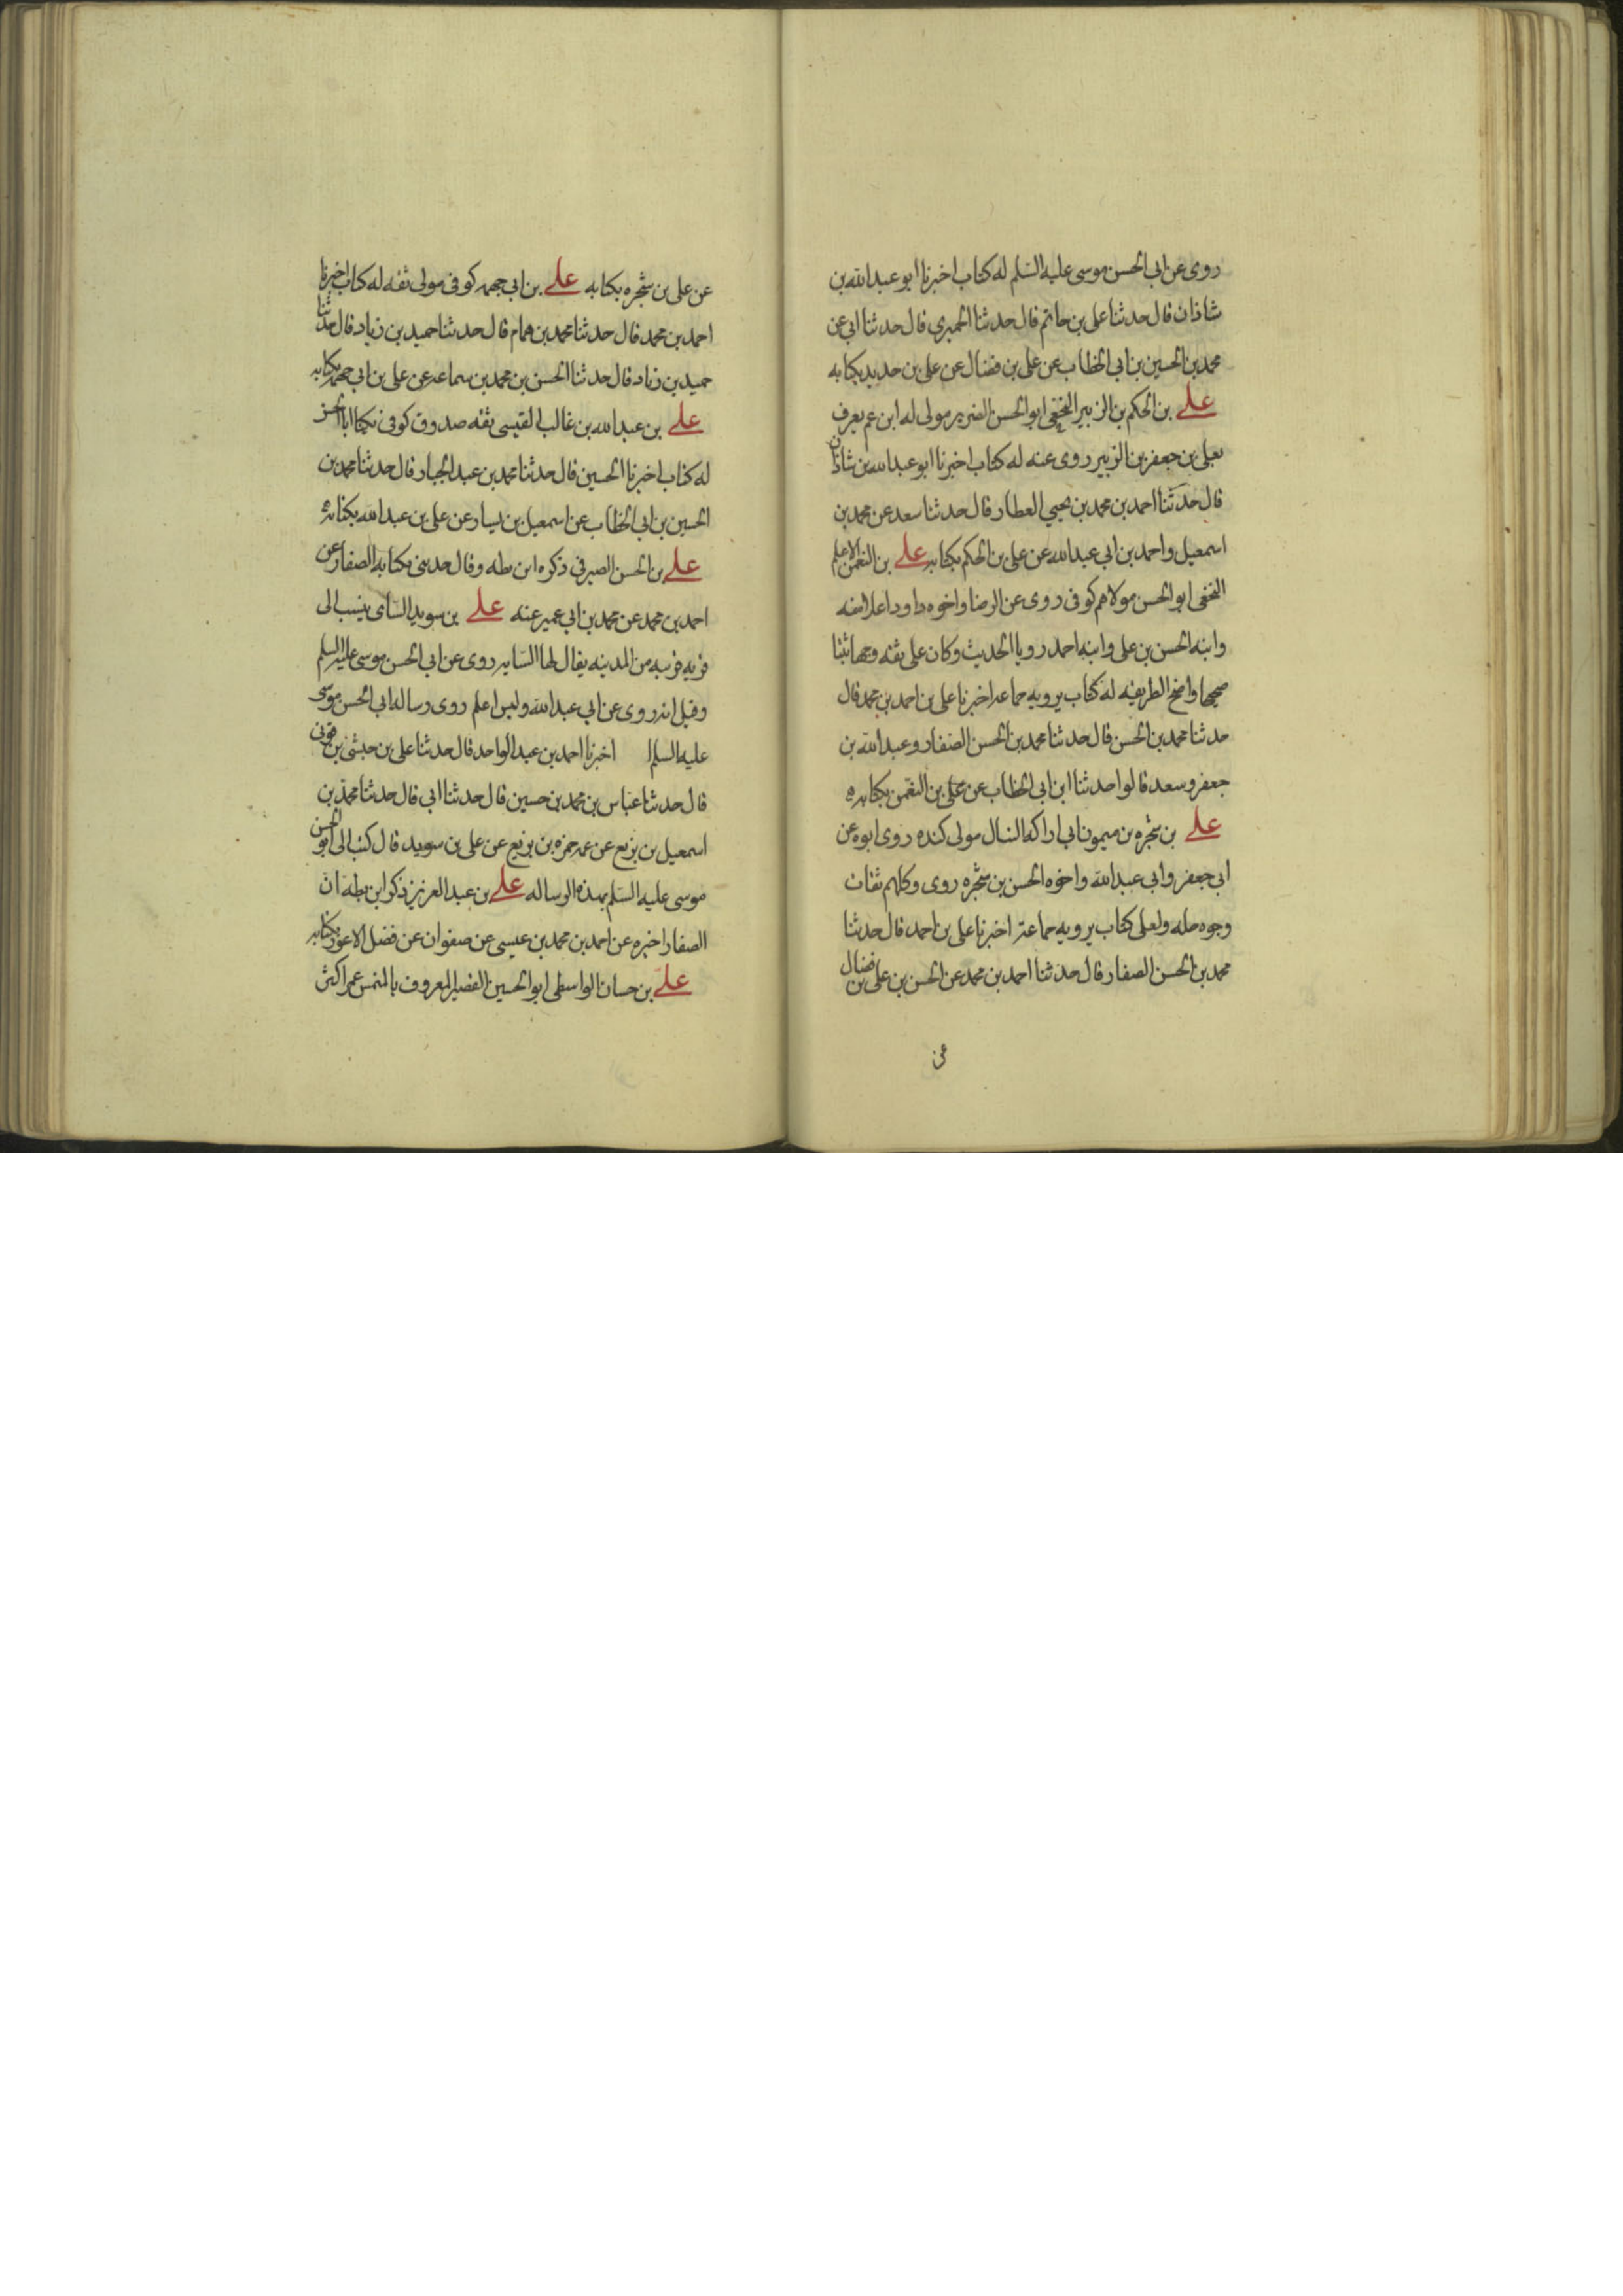 روى عن ابى الحسن موسى عليه السلم له كتاب اخبرنا ابو عبد الله بن
شاذان قال حدثنا على بن حاتم قال حدثنا الحميرى قال حدثنا ابى عن
محمد بن الحسين بن ابى الخطاب عن على بن فضال عن على بن حديد بكتابه
على بن الحكم بن الزبير النخعى ابو الحسن الضرير مولى له ابن عم يعرف
بعلى بن جعفر بن الزبير روى عنه له كتاب اخبرنا ابو عبد الله بن شاذان
قال حدثنا احمد بن محمد بن يحيى العطار قال حدثنا سعد عن محمد بن
اسمعيل واحمد بن ابى عبد الله عن على بن الحكم بكتابه على بن النعمن الاعلم
النخعى ابو الحسن مولاهم كوفى روى عن الرضا واخوه داود اعلا منه
وابنه الحسن بن على وابنه احمد رويا الحديث وكان على ثقه وجها ثبتا
صحيحا واضح الطريقه له كتاب يرويه جماعه اخبرنا على بن احمد بن محمد قال
حدثنا محمد بن الحسن قال حدثنا محمد بن الحسن الصفار وعبد الله بن
جعفر وسعد قالوا حدثنا ابن ابى الخطاب عن على بن النعمن بكتابه
على بن شجره بن ميمون ابى اراكه النبال مولى كنده روى ابوه عن
ابى جعفر وابى عبد الله واخوه الحسن بن شجره روى وكلهم ثقات
وجوه جله ولعلى كتاب يرويه جماعة اخبرنا على بن احمد قال حدثنا
محمد بن الحسن الصفار قال حدثنا احمد بن محمد عن الحسن بن على بن فضال
عن
عن على بن شجره بكتابه على بن ابى جهمه كوفى مولى ثقه له كتاب اخبرنا
احمد بن محمد قال حدثنا محمد بن همام قال حدثنا حميد بن زياد قال حدثنا
حميد بن زياد قال حدثنا الحسن بن محمد بن سماعه عن على بن ابى جهمه بكتابه
على بن عبد الله بن غالب القيسى ثقه صدوق كوفى يكنا ابا الحسن
له كتاب اخبرنا الحسين قال حدثنا محمد بن عبد الجبار قال حدثنا محمد بن
الحسين بن ابى الخطاب عن اسمعيل بن يسار عن على بن عبد الله بكتابه
على بن الحسن الصيرفى ذكره ابن بطه وقال حدثنى بكتابه الصفار عن
احمد بن محمد عن محمد بن ابى عمير عنه على بن سويد السائى ينسب الى
قريه قريبه من المدينه يقال لها السايه روى عن ابى الحسن موسى عليه السلم
وقيل انه روى عن ابى عبد الله وليس اعلم روى رساله ابى الحسن موسى
عليه السلم اخبرنا احمد بن عبد الواحد قال حدثنا على بن حبشى بن قونى
قال حدثنا عباس بن محمد بن حسين قال حدثنا ابى قال حدثنا محمد بن
اسمعيل بن بزيع عن عمه حمزه بن بزيع عن على بن سويد قال كتب الى ابو الحسن
موسى عليه السلم بهذه الرساله على بن عبد العزيز ذكر ابن بطه ان
الصفار اخبره عن احمد بن محمد بن عيسى عن صفوان عن فضل الاعور بكتابه
على بن حسان الواسطى ابو الحسين القصير المعروف بالمنمس عمر اكثر